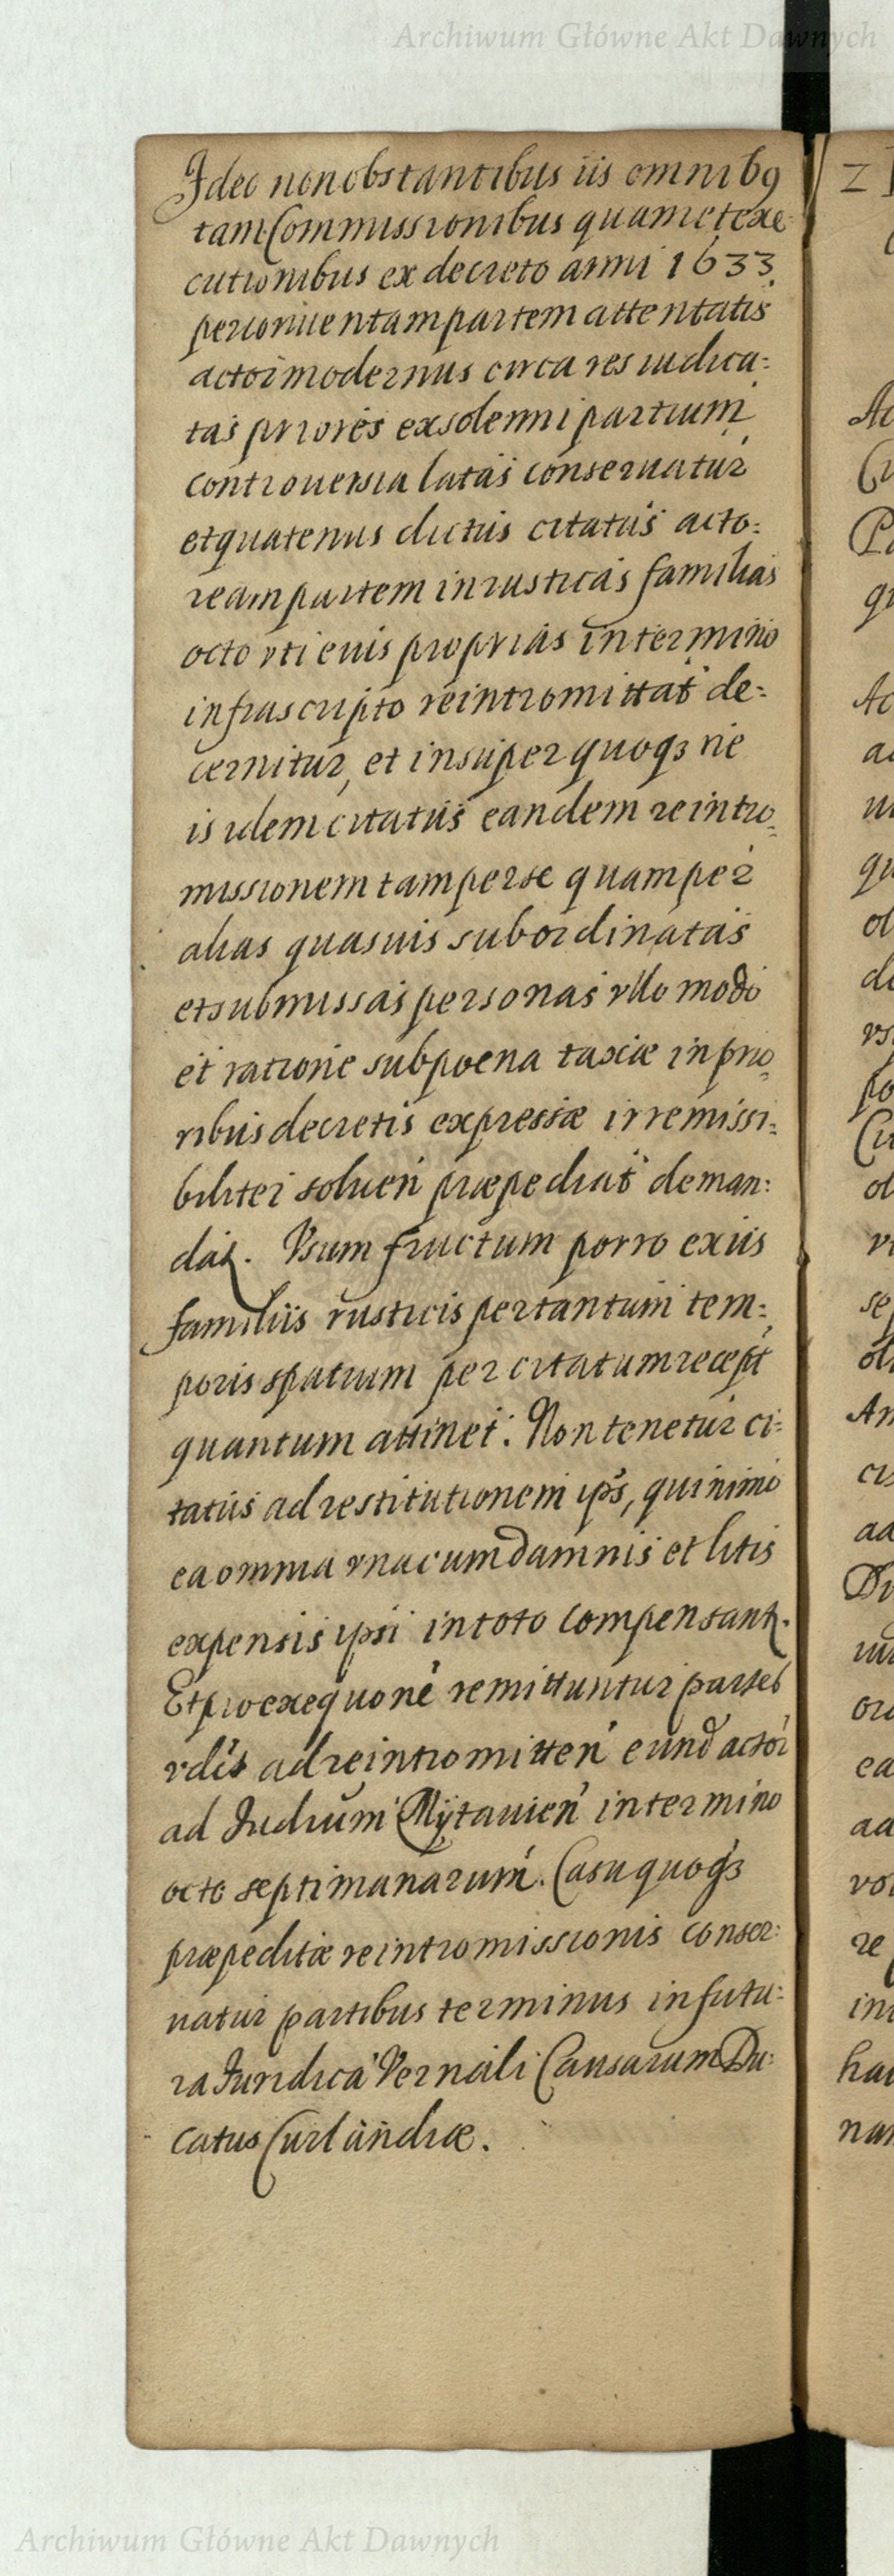 Archiwum Główne Akt Dawnych
Ideo non obstantibus iis omnibq
tam Commissionibus quam et exe-
cutionibus ex decreto anni 1633
per conventam partem attentatis
actor modernus circa res iudica:
tas priores ex solenni partium
controuersia latas conseruatur
et quatenus dictus citatus acto:
ream partem in rusticas familias
octo vti euis proprias in termino
infrascripto reintromittat de:
cernitur, et insuper quoqȝ ne
is idem citatus eandem reintro:
missionem tam per se quam per
alias quasuis subordinatas
et submissas personas vllo modo
et ratione sub poena taxiæ in prio:
ribus decretis expressæ irremissi:
biliter soluen præpediat deman:
dat. Vsum fructum porro ex iis
familiis rusticis per tantum tem:
poris spatium per citatum recept
quantum attinet. Non tenetur ci:
tatus ad restitutionem ips, quinimo
ea omnia vna cum damnis et litis
expensis ipsi in toto compensant.
Et pro exequone remittuntur partes
ad reintromitten eund actor
ad Iudium Mÿtauien in termino
octo septimanarum. Casu quoqȝ
præpeditæ reintromissionis conser:
uatur partibus terminus in futu:
ra Iuridica Vernali Causarum Du:
catus Curlandiæ.
Archiwum Główne Akt Dawnych